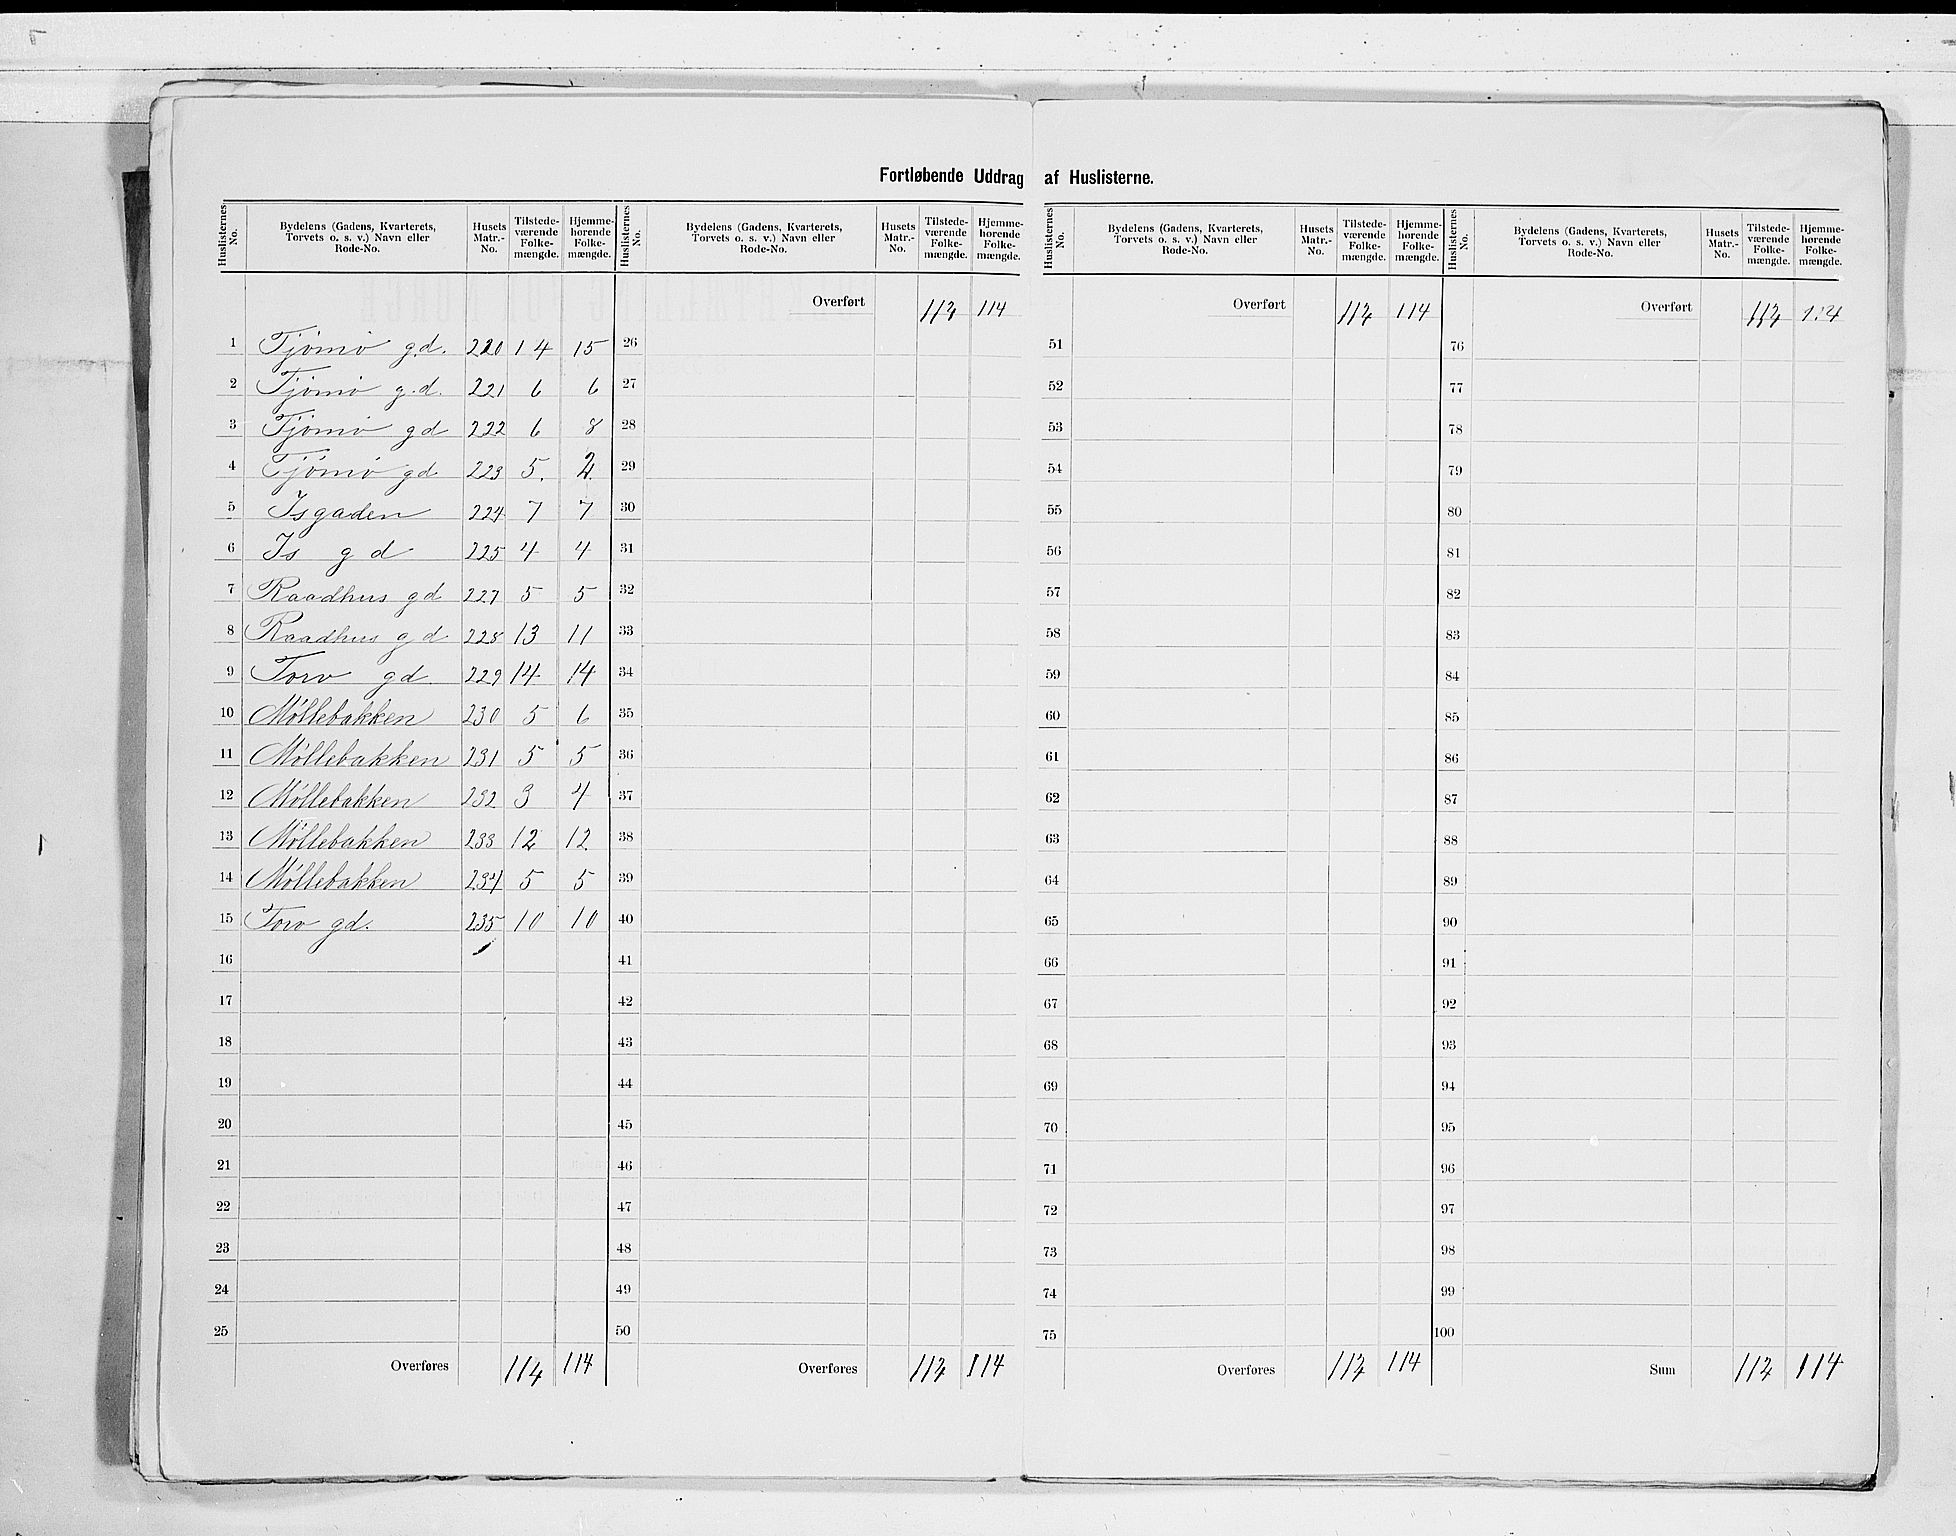 Fortløbende Uddrag af Huslisterne.
Huslisternes No. Bydelens (Gadens, Kvarterets, Torvets o. s. v.) Navn eller Rode-No. Husets Matr.-No. Tilstedeværende Folkemængde. Hjemmehørende Folkemængde.
1 Tjømø gd. 220 14 15
2 Tjømø g.d. 221 6 6
3 Tjømø gd 222 6 8
4 Tjømø gd 223 5. 2
5 Isgaden 224 7 7
6 Is gd 225 4 4
7 Raadhus gd 227 5 5
8 Raadhus gd 228 13 11
9 Torv gd. 229 14 14
10 Møllebakken 230 5 6
11 Møllebakken 231 5 5
12 Møllebakken 232 3 4
13 Møllebakken 233 12 12
14 Møllebakken 234 5 5
15 Torv gd. 235 10 10
16
17
18
19
20
21
22
23
24
25
Overføres 114 114
Huslisternes No. Bydelens (Gadens, Kvarterets, Torvets o. s. v.) Navn eller Rode-No. Husets Matr.-No. Tilstedeværende Folkemængde. Hjemmehørende Folkemængde.
Overført 114 114
26
27
28
29
30
31
32
33
34
35
36
37
38
39
40
41
42
43
44
45
46
47
48
49
50
Overføres 114 114
Huslisternes No. Bydelens (Gadens, Kvarterets, Torvets o. s. v.) Navn eller Rode-No. Husets Matr.-No. Tilstedeværende Folkemængde. Hjemmehørende Folkemængde.
Overført 114 114
51
52
53
54
55
56
57
58
59
60
61
62
63
64
65
66
67
68
69
70
71
72
73
74
75
Overføres 114 114
Huslisternes No. Bydelens (Gadens, Kvarterets, Torvets o. s. v.) Navn eller Rode-No. Husets Matr.-No. Tilstedeværende Folkemængde. Hjemmehørende Folkemængde.
Overført 114 114
76
77
78
79
80
81
82
83
84
85
86
87
88
89
90
91
92
93
94
95
96
97
98
99
100
Sum 114 114